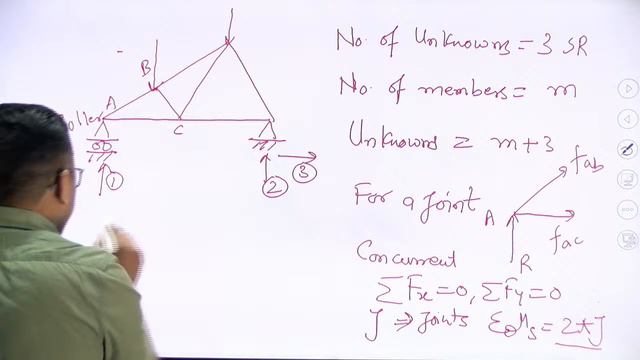 No. of Unknowns = 3 SR
No. of members = m
Unknowns = m+3
For a Joint
A
fab
fac
R
Concurrent
ΣFx=0, ΣFy=0
J ⇒ Joints EQns = 2*J
B
A
C
1
2
3